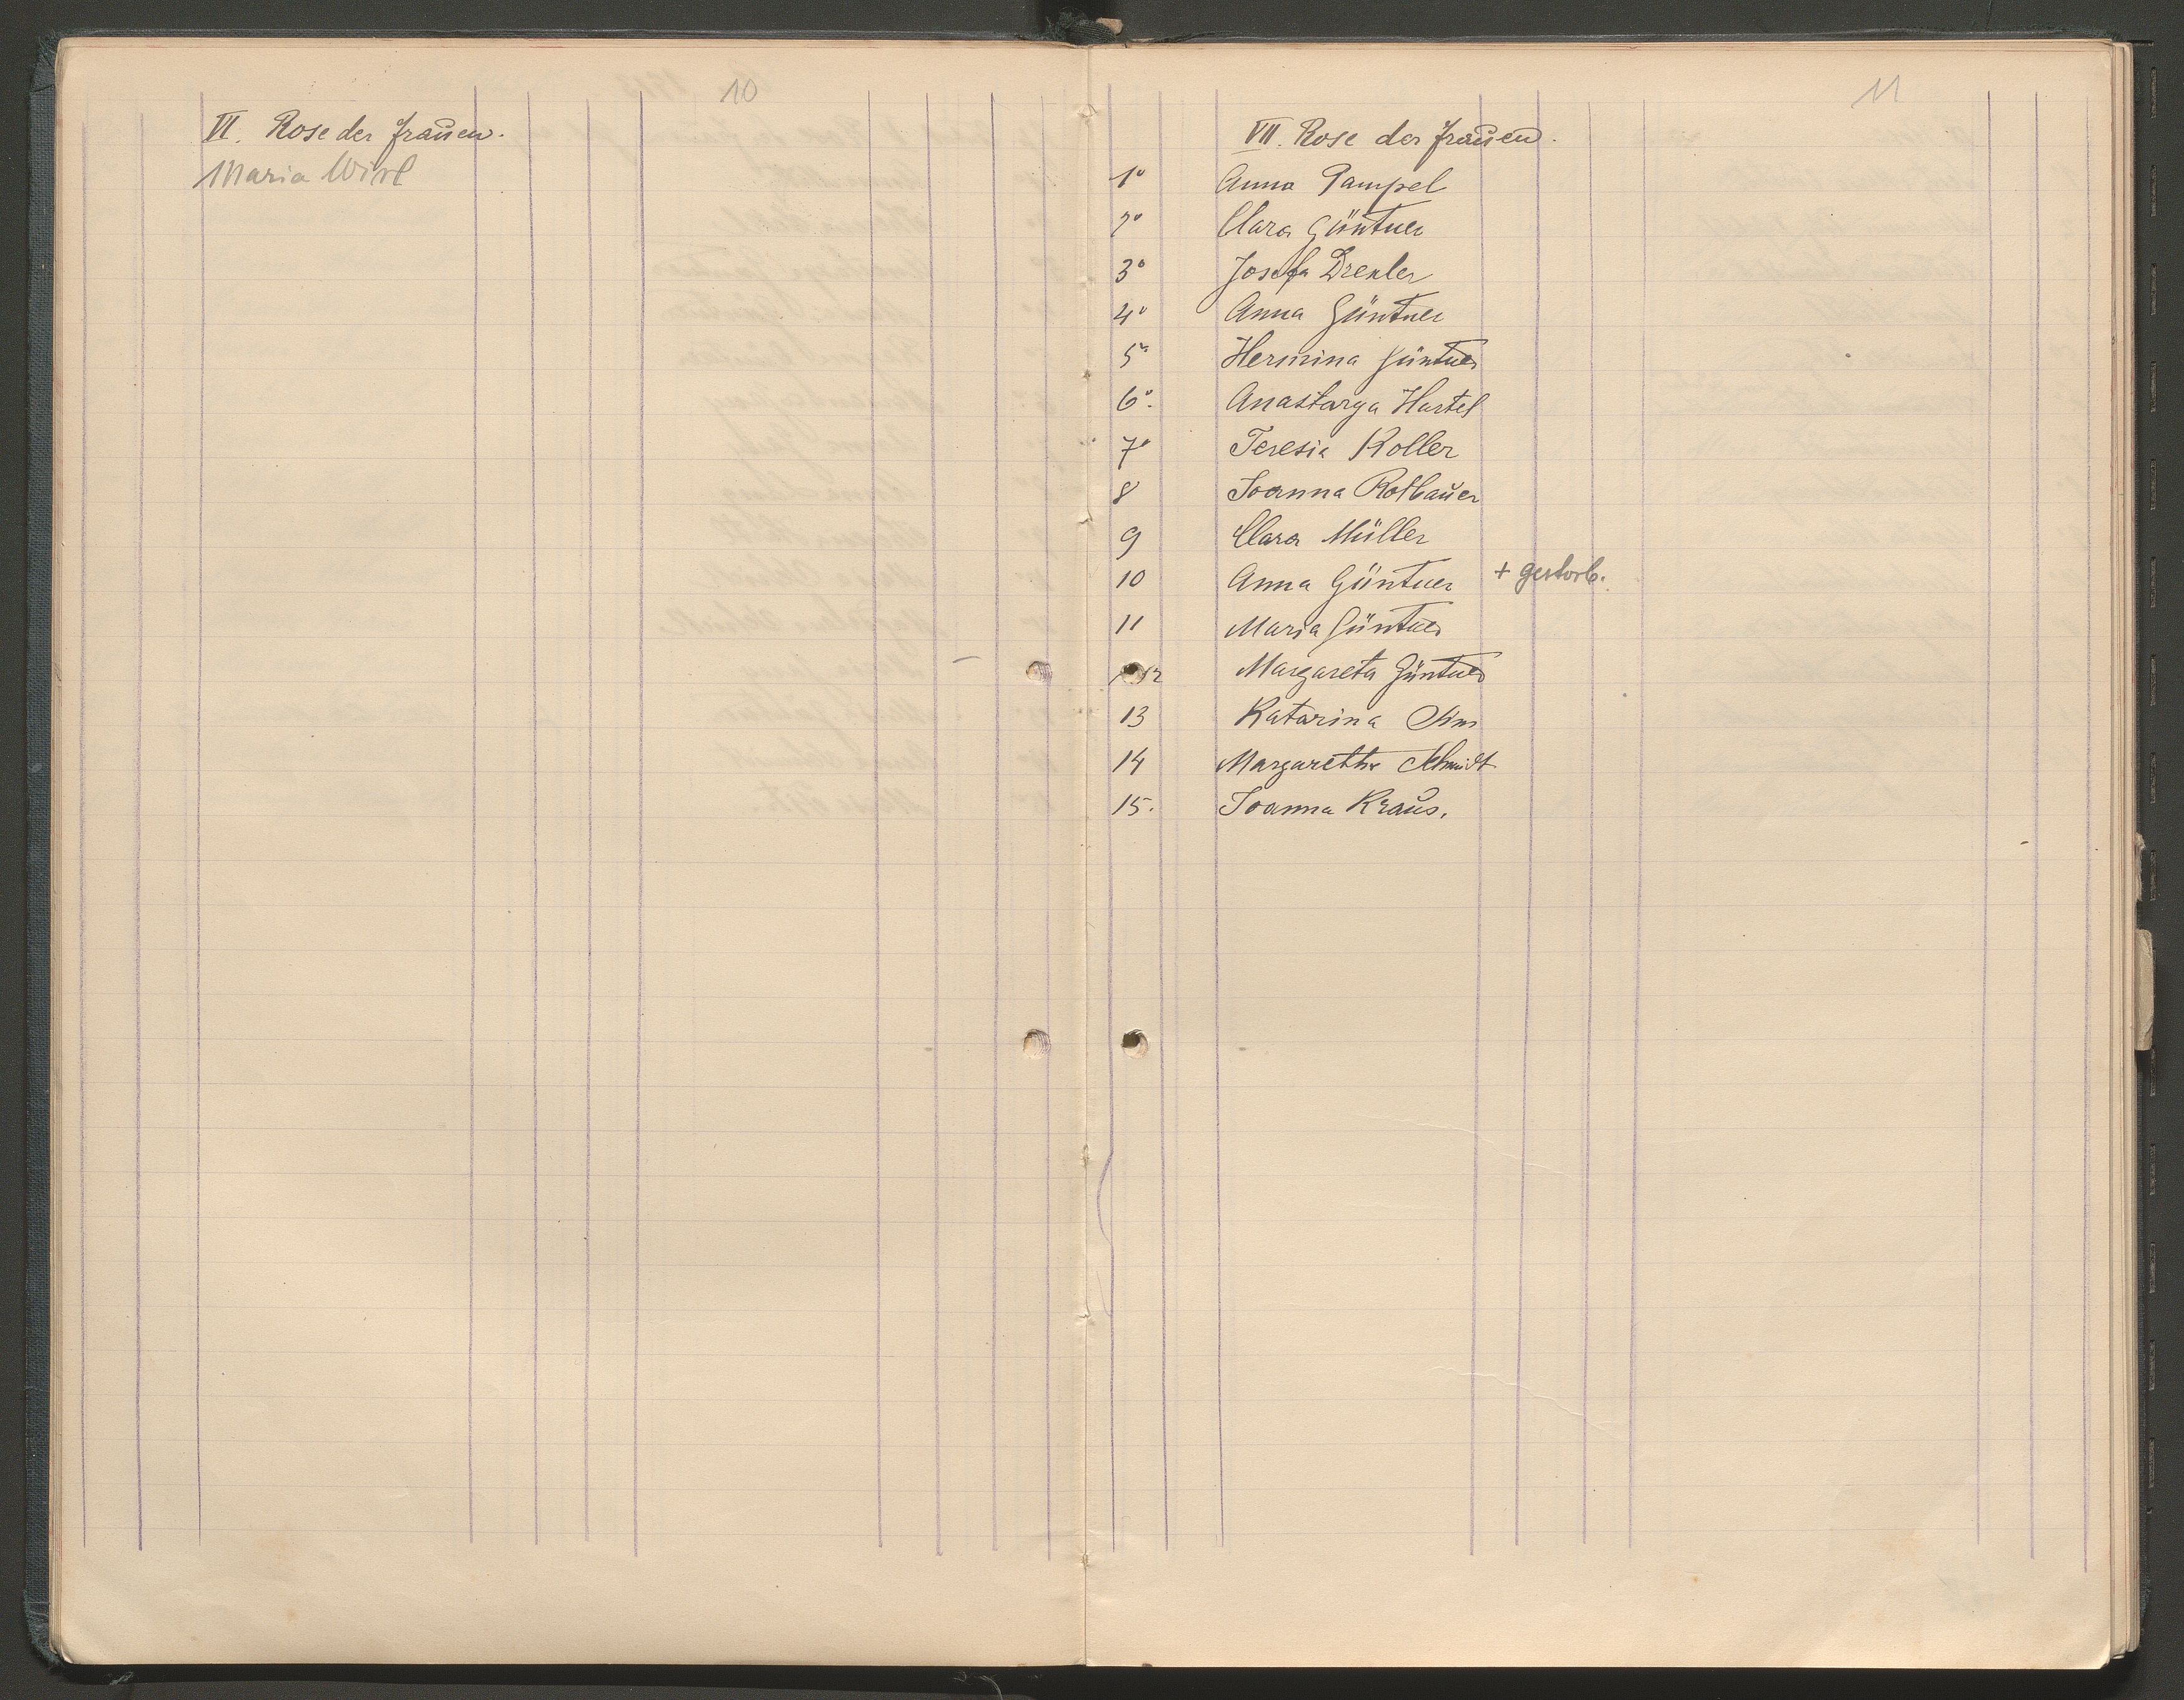 10
VI. Rose der Frauen.
Maria Wirl
11
VII. Rose der Frauen.
1° Anna Pampel
2° Clara Güntner
3° Josefa Drexler
4° Anna Güntner
5° Hermina Güntner
6°. Anastazya Hartel
7° Teresia Koller
8 Joanna Rotbauer
9 Clara Müller
10 Anna Güntner + gestorb.
11 Maria Güntner
12 Margareta Güntner
13 Katarina
14 Margaretha Schmidt
15. Joanna Kraus.